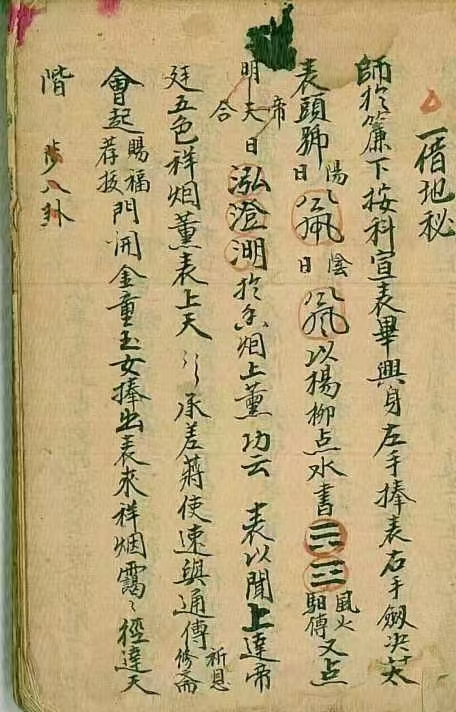 一借地秘
師於簾下按科宣表畢興身左手捧表右手劔决太
表頭號陽日陰日以楊柳点水書三三風火駟傳又点
明天合帝日泓澄渊於香烟上薰功云 表以聞上達帝
廷五色祥烟薰表上天〻承差蔣使速與通傳祈恩修斋
會起賜福荐拔門開金童玉女捧出表來祥烟靄〻徑達天
階 步八卦